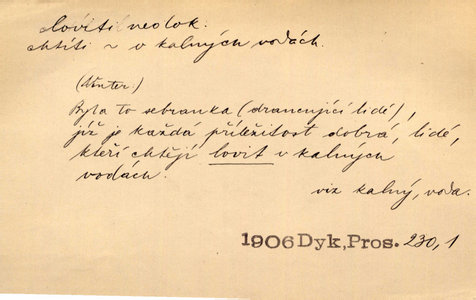 loviti neolok.
chtíti ~ v kalných vodách.
(Winter.)
Byla to sebranka (drancující lidé),
jíž je každá příležitost dobrá, lidé,
kteří chtějí lovit v kalných
vodách.
viz kalný, voda.
1906 Dyk, Pros. 230, 1